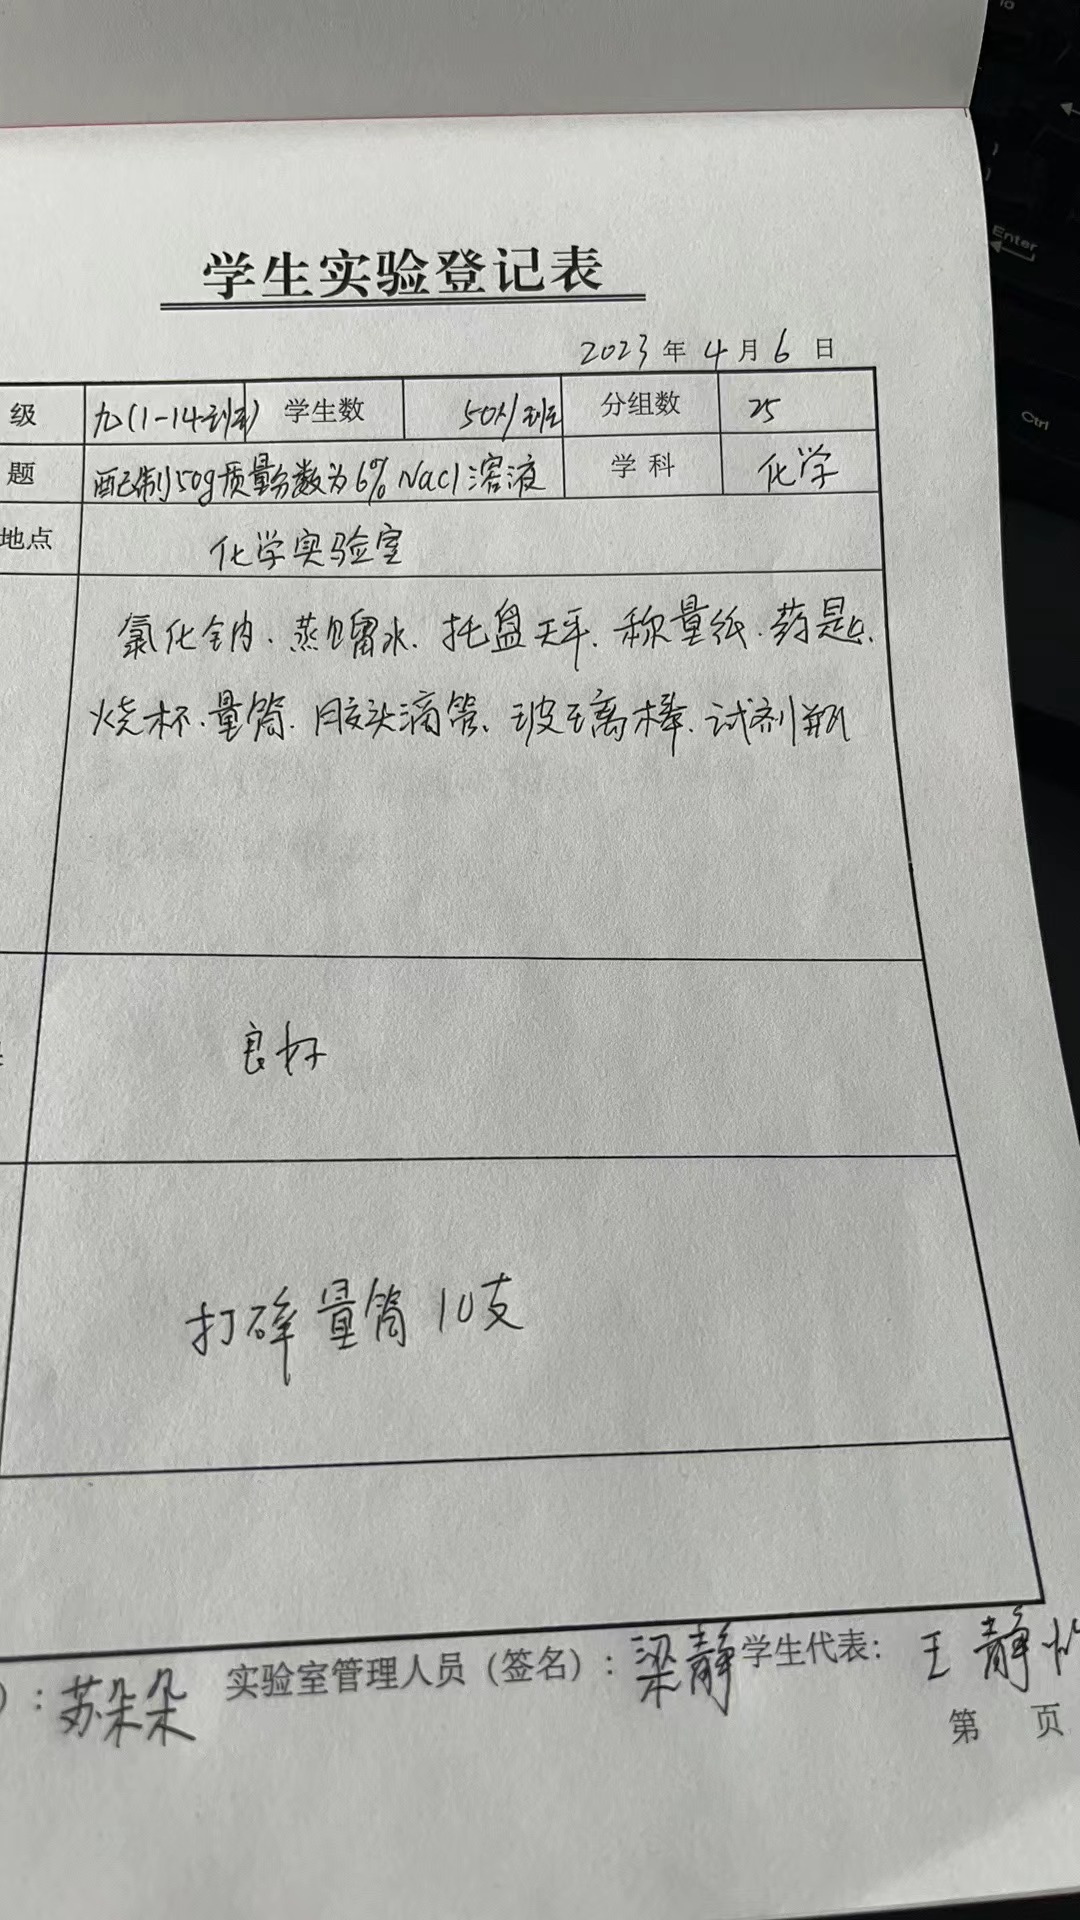 学生实验登记表
2023年4月6日
级 九(1-14班) 学生数 50人/班 分组数 25
题 配制50g质量分数为6% Nacl溶液 学科 化学
地点 化学实验室
氯化钠、蒸馏水、托盘天平、称量纸、药匙、
烧杯、量筒、胶头滴管、玻璃棒、试剂瓶
良好
打碎量筒10支
）：苏朵朵 实验室管理人员（签名）：梁静 学生代表：王静
第 页
Enter
Ctrl